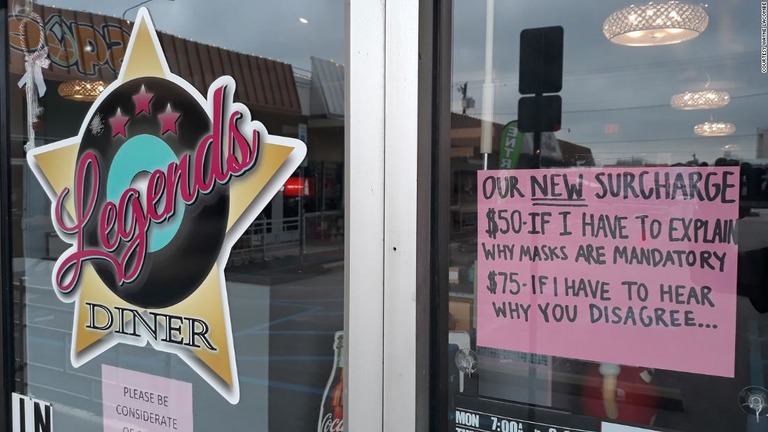 Legends
DINER
PLEASE BE
CONSIDERATE
IN
OUR NEW SURCHARGE
$50-IF I HAVE TO EXPLAIN
WHY MASKS ARE MANDATORY
$75-IF I HAVE TO HEAR
WHY YOU DISAGREE...
MON 7:00A
COURTESY WAYNE LACOMBE